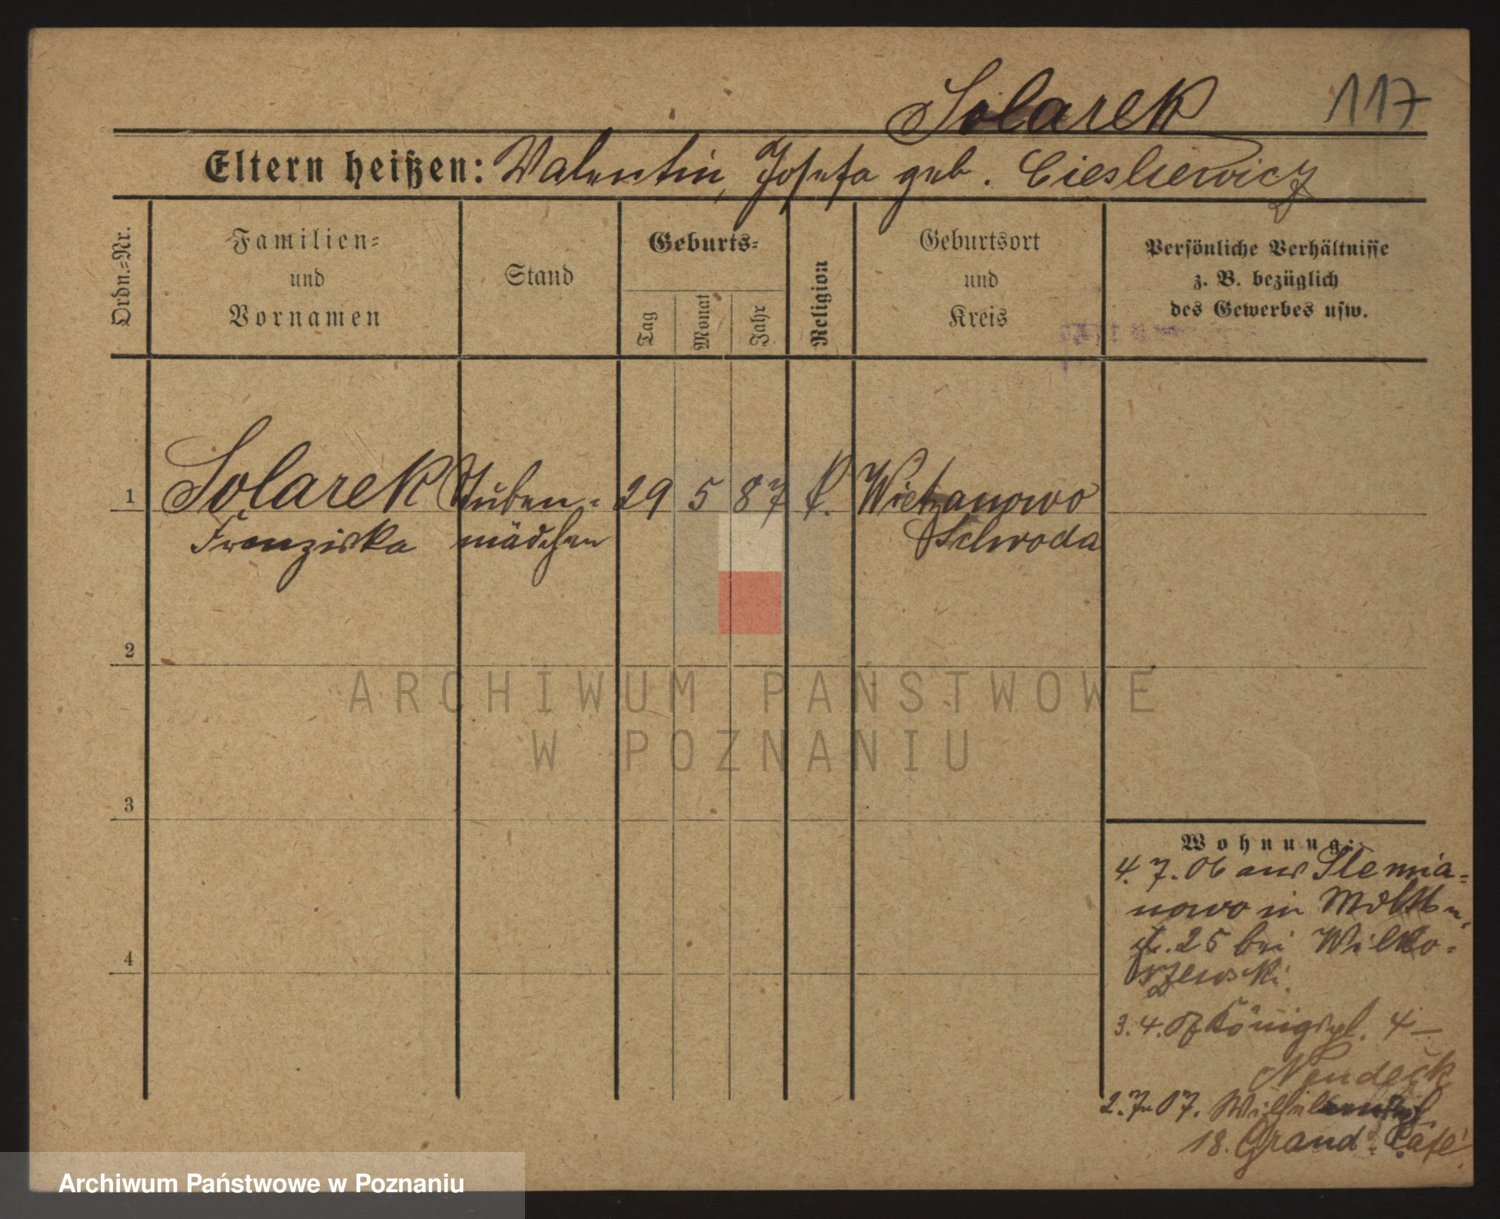 Solarek 117
Eltern heißen: Valentin, Josefa geb. Cieslewicz
Ordn.=Nr.
Familien=
und
Vornamen
Stand
Geburts=
Tag
Monat
Jahr
Religion
Geburtsort
und
Kreis
Persönliche Verhältnisse
z. B. bezüglich
des Gewerbes usw.
1 Solarek Stuben= 29 5 87 k. Wichanowo
Franziska mädchen Schroda
2
ARCHIWUM PAŃSTWOWE
W POZNANIU
3
4
Wohnung:
4. 7. 06 aus Slemia=
nowo in
str. 25 bei Wilko=
rzewski.
3. 4. 07 Königspl. 4 –
Neudeck
2. 7. 07.
18. Grand Café.
Archiwum Państwowe w Poznaniu